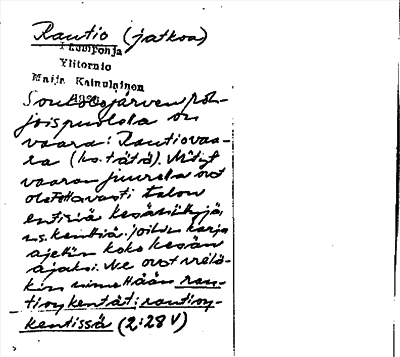 Rautio (jatkoa)
Lampinja
Ylitornio
Maija Kainulainen
järven poh-
joispuolella on
vaara: Rautiovaa-
ra (ks. tätä).
vaaran juurella ovat
olettavasti talon
entisiä
n.s. kenttiä, joihin karja
ajettiin koko kesän
ajaksi. Ne ovat vielä-
kin nimeltään rau-
tionkentät: raution-
kentissä (2:28 V)